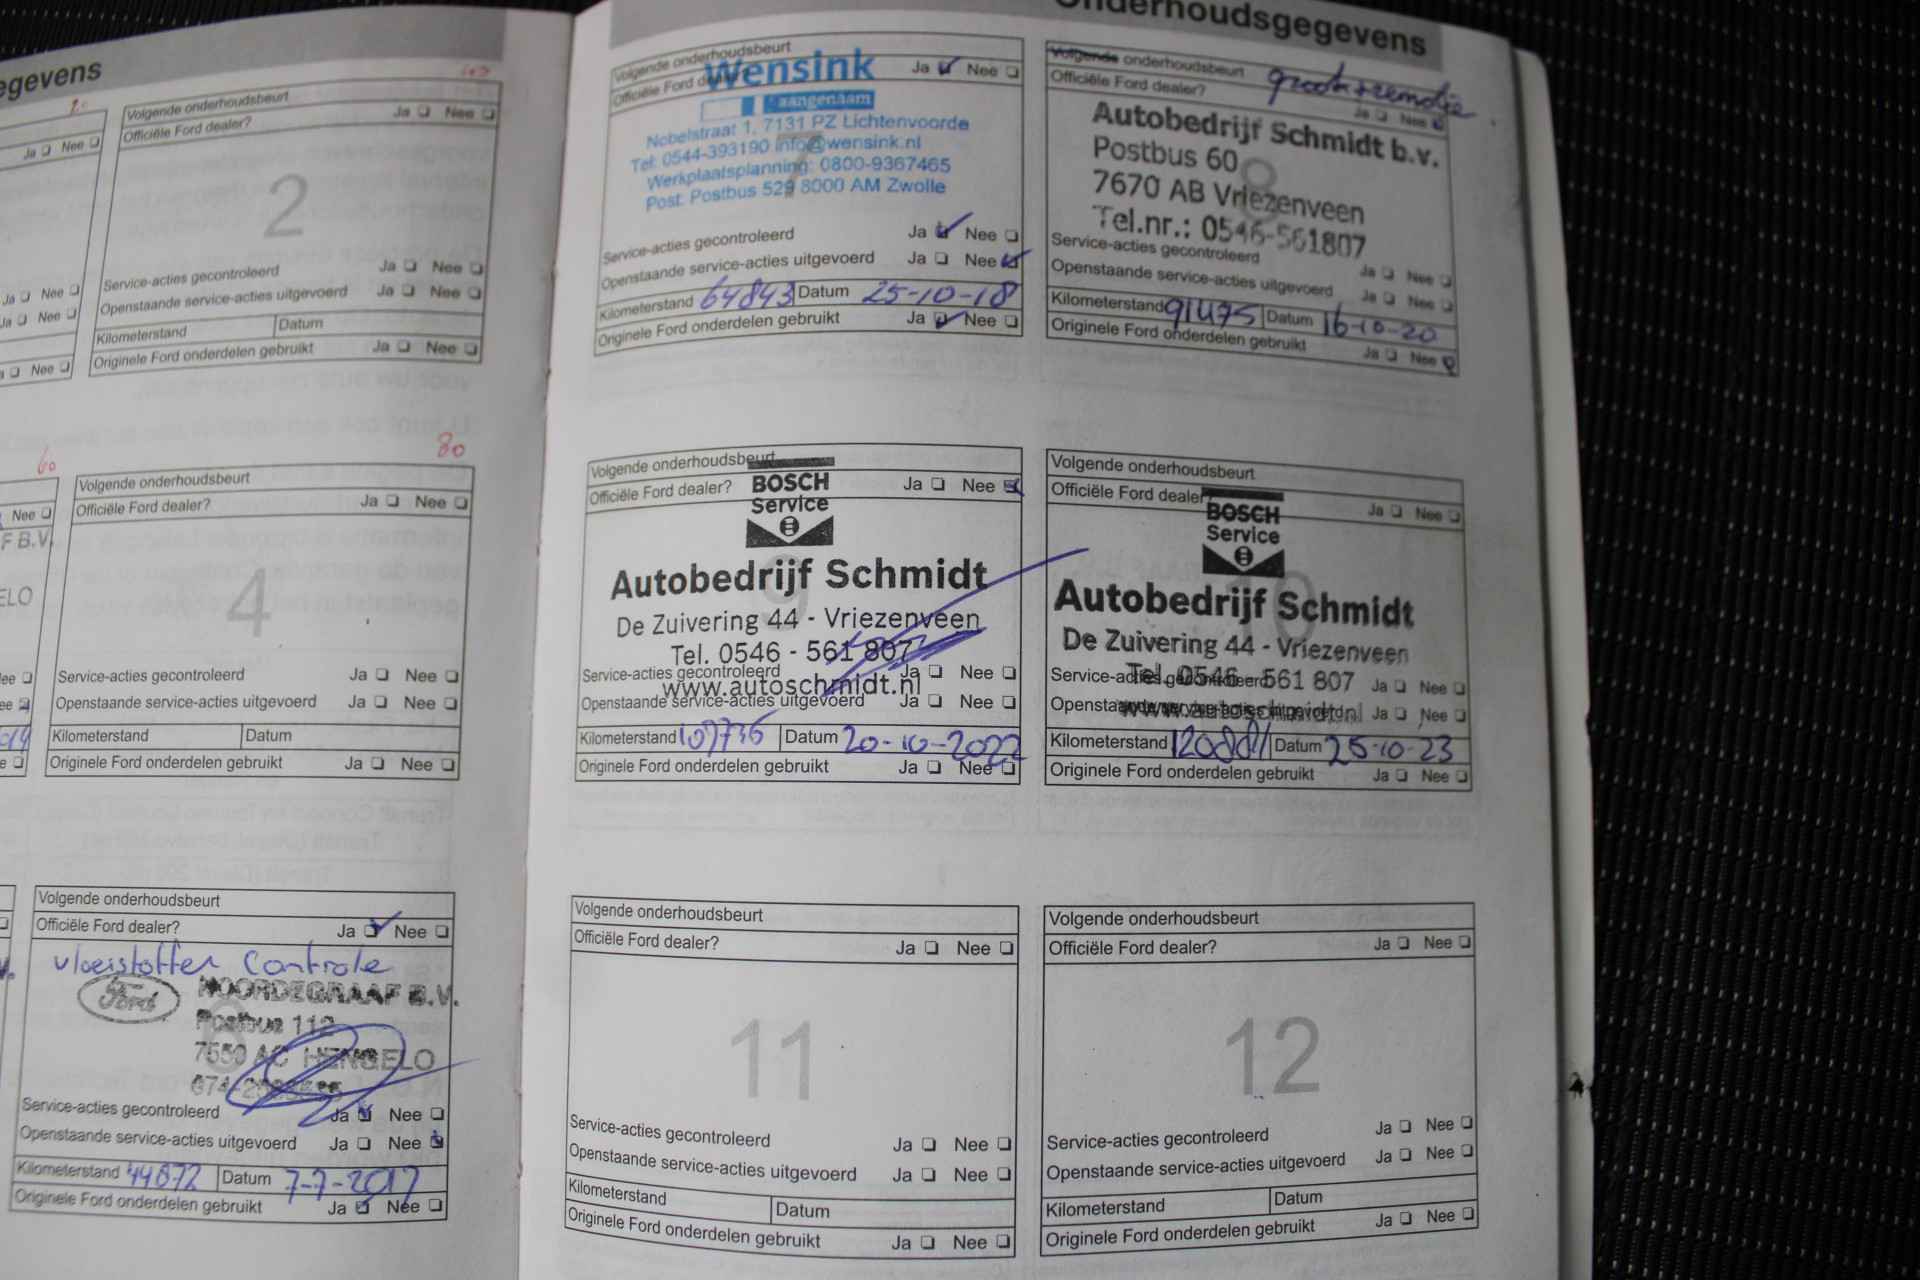 egevens
Ja Nee
Ja Nee
Ja Nee
Nee
60
Nee
F B.V.
ELO
Volgende onderhoudsbeurt
Officiële Ford dealer? Ja Nee
2
Service-acties gecontroleerd Ja Nee
Openstaande service-acties uitgevoerd Ja Nee
Kilometerstand Datum
Originele Ford onderdelen gebruikt Ja Nee
80
Volgende onderhoudsbeurt
Officiële Ford dealer? Ja Nee
4
Service-acties gecontroleerd Ja Nee
Openstaande service-acties uitgevoerd Ja Nee
Kilometerstand Datum
Originele Ford onderdelen gebruikt Ja Nee
Volgende onderhoudsbeurt
Officiële Ford dealer? Ja Nee
vloeistoffen Controle
Ford NOORDEGRAAF B.V.
Postbus 112
7550 AC HENGELO
Service-acties gecontroleerd Ja Nee
Openstaande service-acties uitgevoerd Ja Nee
Kilometerstand 44872 Datum 7-7-2017
Originele Ford onderdelen gebruikt Ja Nee
Onderhoudsgegevens
Volgende onderhoudsbeurt
Officiële Ford dealer? Ja Nee
Wensink
aangenaam
7
Nobelstraat 1, 7131 PZ Lichtenvoorde
Tel: 0544-393190 info@wensink.nl
Werkplaatsplanning: 0800-9367465
Post: Postbus 529 8000 AM Zwolle
Service-acties gecontroleerd Ja Nee
Openstaande service-acties uitgevoerd Ja Nee
Kilometerstand 64843 Datum 25-10-18
Originele Ford onderdelen gebruikt Ja Nee
Volgende onderhoudsbeurt
Officiële Ford dealer? Ja Nee
8
Autobedrijf Schmidt b.v.
Postbus 60
7670 AB Vriezenveen
Tel.nr.: 0546-561807
Service-acties gecontroleerd Ja Nee
Openstaande service-acties uitgevoerd Ja Nee
Kilometerstand 91475 Datum 16-10-20
Originele Ford onderdelen gebruikt Ja Nee
Volgende onderhoudsbeurt
Officiële Ford dealer? Ja Nee
BOSCH
Service
9
Autobedrijf Schmidt
De Zuivering 44 - Vriezenveen
Tel. 0546 - 561 807
Service-acties gecontroleerd Ja Nee
www.autoschmidt.nl
Openstaande service-acties uitgevoerd Ja Nee
Kilometerstand 107736 Datum 20-10-2022
Originele Ford onderdelen gebruikt Ja Nee
Volgende onderhoudsbeurt
Officiële Ford dealer? Ja Nee
BOSCH
Service
10
Autobedrijf Schmidt
De Zuivering 44 - Vriezenveen
Tel. 0546 - 561 807
Service-acties gecontroleerd Ja Nee
www.autoschmidt.nl
Openstaande service-acties uitgevoerd Ja Nee
Kilometerstand 120881 Datum 25-10-23
Originele Ford onderdelen gebruikt Ja Nee
Volgende onderhoudsbeurt
Officiële Ford dealer? Ja Nee
11
Service-acties gecontroleerd Ja Nee
Openstaande service-acties uitgevoerd Ja Nee
Kilometerstand Datum
Originele Ford onderdelen gebruikt Ja Nee
Volgende onderhoudsbeurt
Officiële Ford dealer? Ja Nee
12
Service-acties gecontroleerd Ja Nee
Openstaande service-acties uitgevoerd Ja Nee
Kilometerstand Datum
Originele Ford onderdelen gebruikt Ja Nee